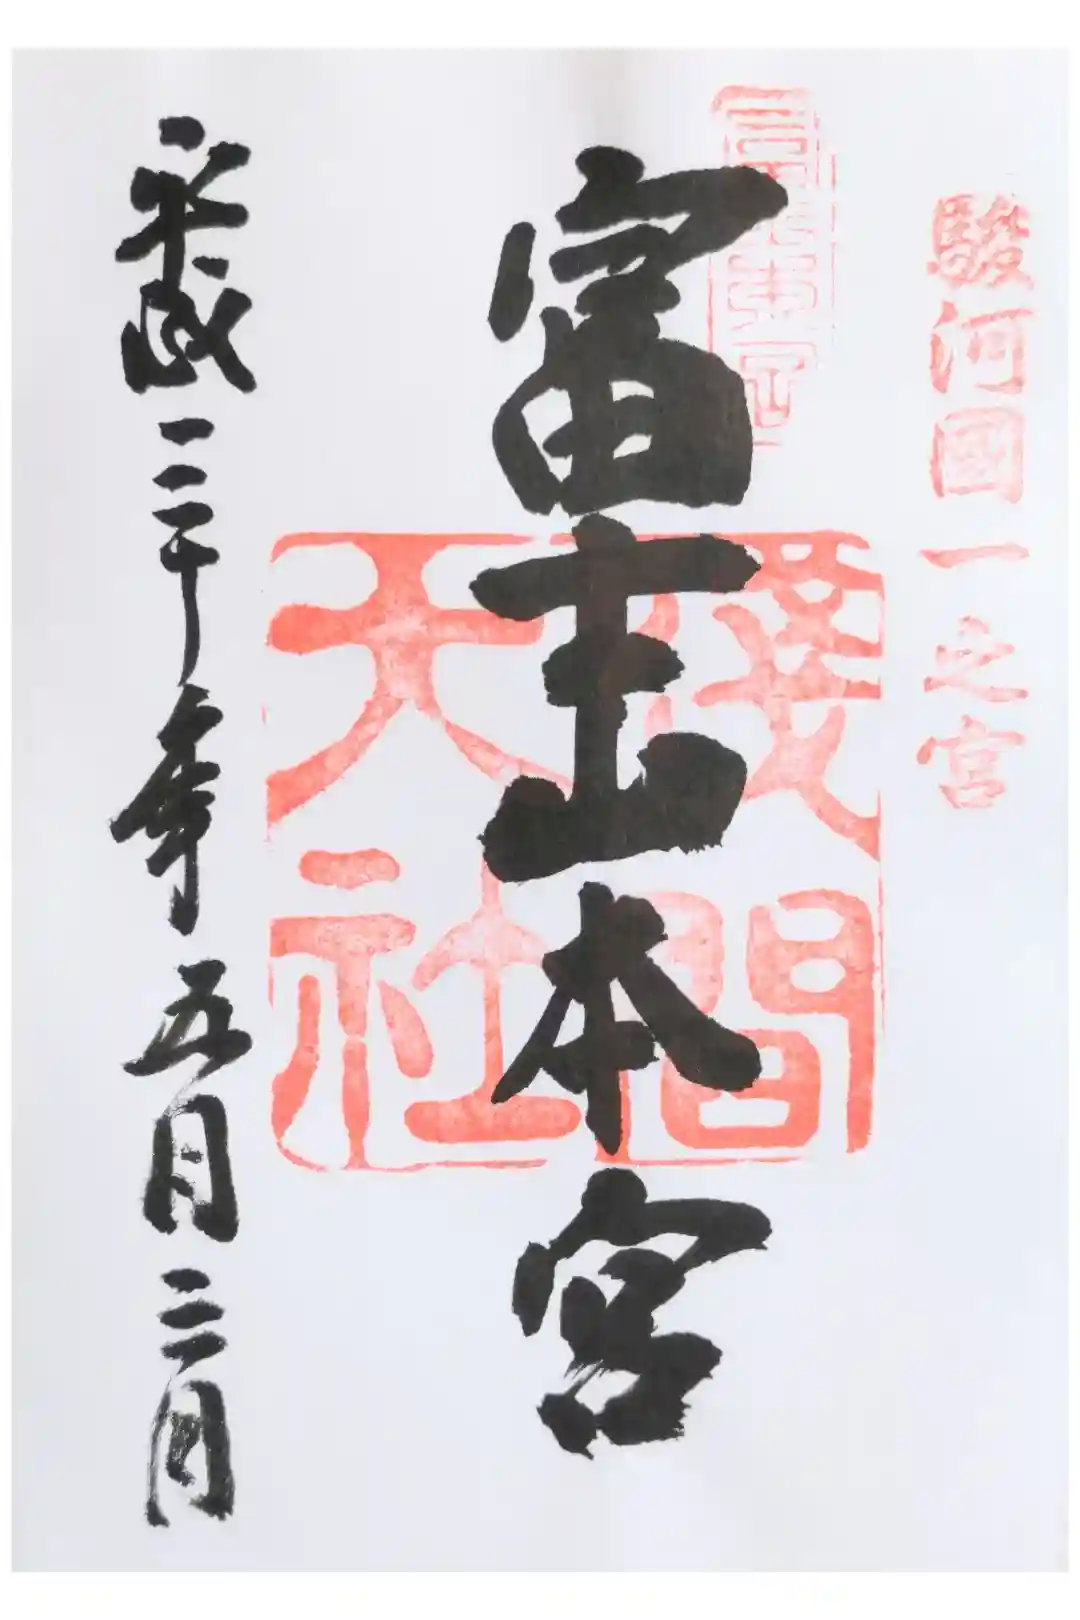 駿河國一之宮
富士山本宮
淺間
大社
平成三十年五月三日